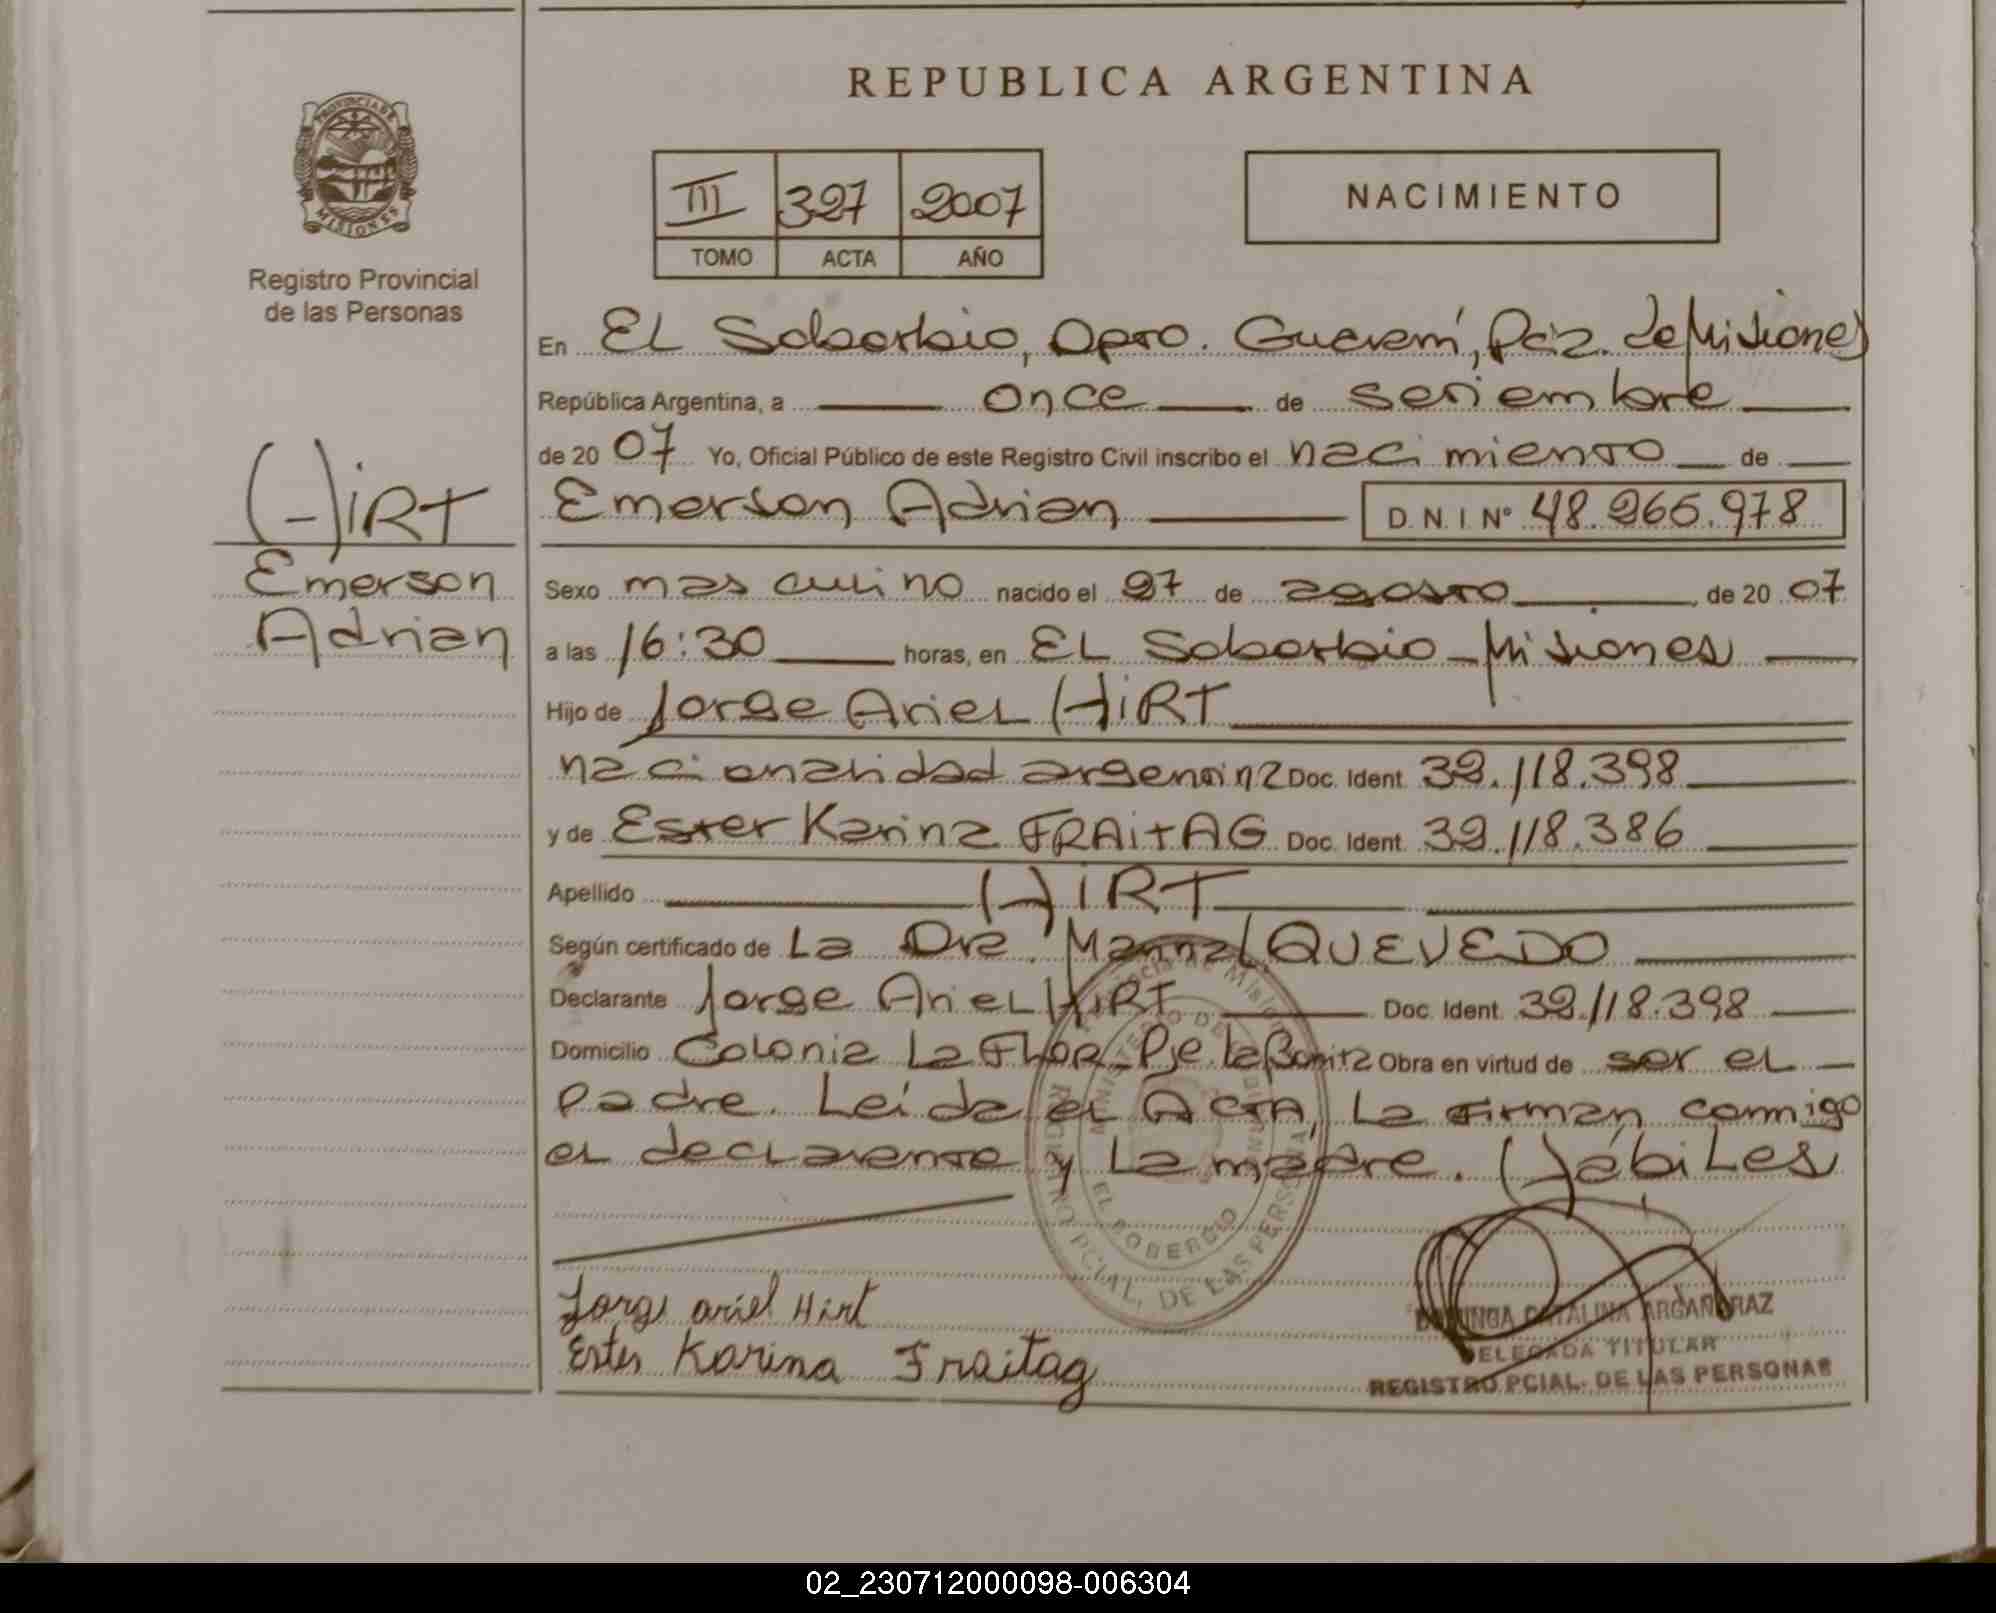 REPUBLICA ARGENTINA
PROVINCIA DE
MISIONES
Registro Provincial
de las Personas
III 327 2007
TOMO ACTA AÑO
NACIMIENTO
HIRT
Emerson
Adrian
En EL Soberbio, Dpto. Guaraní, Pcia. de Misiones
República Argentina, a once de setiembre
de 2007 Yo, Oficial Público de este Registro Civil inscribo el nacimiento de
Emerson Adrian D.N.I. Nº 48.265.978
Sexo masculino nacido el 27 de agosto, de 2007
a las 16:30 horas, en EL Soberbio - Misiones
Hijo de Jorge Ariel HIRT
nacionalidad argentina Doc. Ident. 32.118.398
y de Ester Karina FRAITAG Doc. Ident. 32.118.386
Apellido HIRT
Según certificado de La Dra. Marina QUEVEDO
Declarante Jorge Ariel HIRT Doc. Ident. 32.118.398
Domicilio Colonia La Flor Pje. La Bonita Obra en virtud de ser el
Padre. Leída el ACTA, La firman conmigo
el declarante y La madre. Hábiles
EL SOBERBIO
REGISTRO PCIAL. DE LAS PERSONAS
Jorge ariel Hirt
Ester Karina Fraitag
CATALINA ARGAÑARAZ
DELEGADA TITULAR
REGISTRO PCIAL. DE LAS PERSONAS
02_230712000098-006304